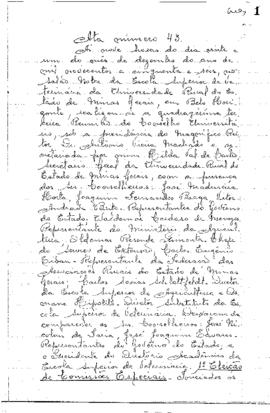 1
Ata número 43.
Às nove horas do dia vinte e
um do mês de dezembro do ano de
mil novecentos e cinquenta e seis, no
salão Nobre da Escola Superior de Ve-
terinária da Universidade Rural do Es-
tado de Minas Gerais, em Belo Hori-
zonte, realizou-se a quadragésima ter-
ceira Reunião do Conselho Universitá-
rio, sob a presidência do Magnífico Rei-
tor Dr. Antônio Vieira Machado e se-
cretariada por mim
Secretário Geral da Universidade Rural do
Estado de Minas Gerais, com a presença
dos Srs. Conselheiros: José Madureira
Horta, Joaquim Fernandes Braga,
Representantes do Governo
do Estado; Waldemar Cardoso de
Representante do Ministério da Agricul-
tura; Ildomar Resende Chefe
do Serviço de Extensão;
Representante da Federação das
Associações Rurais do Estado de Minas
Gerais; Carlos Socias Schlottfeldt, Diretor
da Escola Superior de Agricultura e
Hipólito, Diretor Substituto da Es-
cola Superior de Veterinária. Deixaram de
comparecer os srs. Conselheiros: José
de Faria, José Joaquim
Representantes do Governo do Estado, e
o Presidente do Diretório Acadêmico da
Escola Superior de Veterinária. 1º Eleição
de Comissões Especiais.